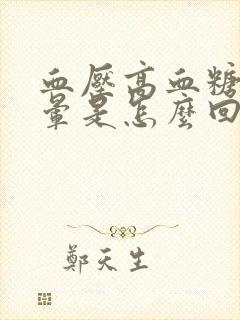 血壓高血糖
暈是怎麼回
鄭天生